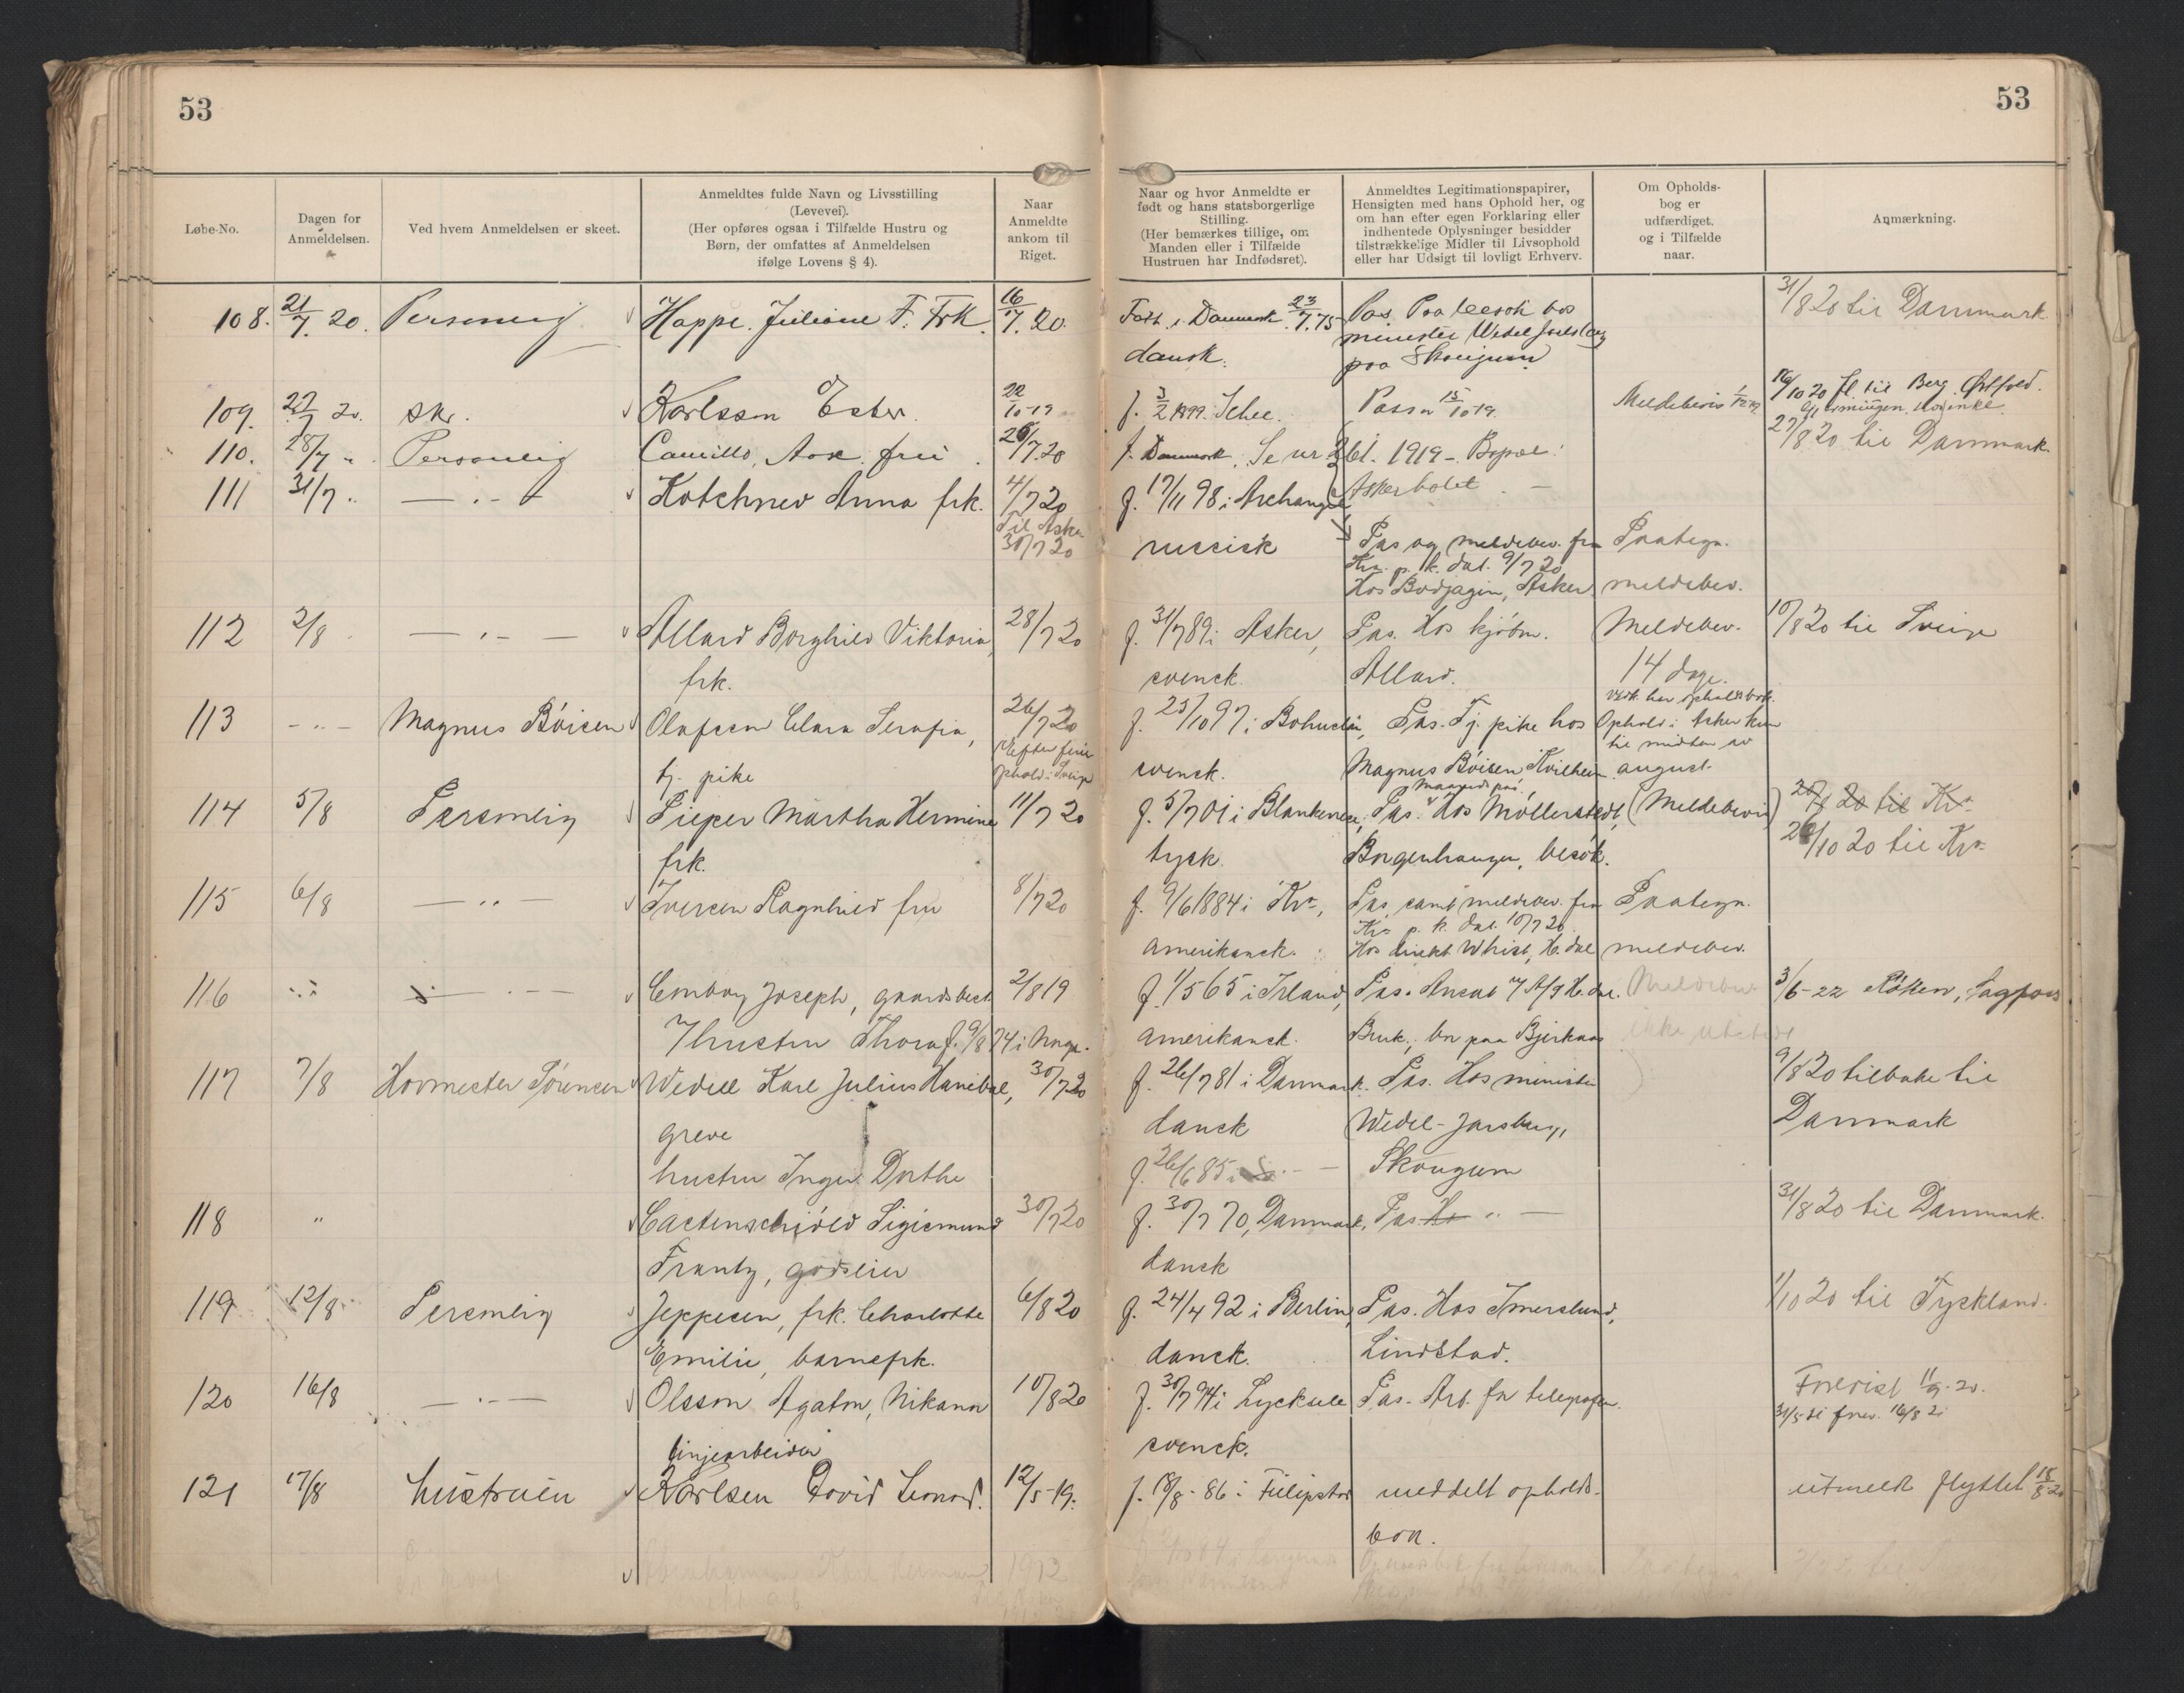 53
53
Løbe-No.
Dagen for
Anmeldelsen.
Ved hvem Anmeldelsen er skeet.
Anmeldtes fulde Navn og Livsstilling
(Levevei).
(Her opføres ogsaa i Tilfælde Hustru og
Børn, der omfattes af Anmeldelsen
ifølge Lovens § 4).
Naar
Anmeldte
ankom til
Riget.
Naar og hvor Anmeldte er
født og hans statsborgerlige
Stilling.
(Her bemærkes tillige, om
Manden eller i Tilfælde
Hustruen har Indfødsret).
Anmeldtes Legitimationspapirer,
Hensigten med hans Ophold her, og
om han efter egen Forklaring eller
indhentede Oplysninger besidder
tilstrækkelige Midler til Livsophold
eller har Udsigt til lovligt Erhverv.
Om Opholds-
bog er
udfærdiget.
og i Tilfælde
naar.
Anmærkning.
108. 21/7. 20. Personlig Happe. Juliane F. Frk. 16/7. 20. Født i Danmark 23/7. 75 Pas. Paa besøk hos 31/8 20 til Danmark
dansk. minister Wedel Jarlsberg
paa Skaugum
109. 22/7 20. skr. Karlsson Ester. 22/10-19 f. 3/2 1899. Pass 15/10 19. Meldebevis 16/10 20 fl. til Berg Østfold.
110. 28/7 " Personlig Camillo, Aase, frú 26/7 20 f. Danmark. Se nr 261. 1919 - Bopæl: 27/8 20 til Danmark.
111 31/7 " — " — Kotchnev Anna frk. 4/7 20 f. 17/11 98 i Archangel Askerholet —
Til Asker
30/7 20 russisk Pas og meldebev. fra Paategn.
Kra. p. k. dat. 9/7 20
Hos Bodjagin, Asker meldebev.
112 2/8 — " — Allard Borghild Viktoria, 28/7 20 f. 31/7 89 i Asker, Pas. Hos kjøbm. Meldebev. 10/8 20 til Sverige
frk. svensk. Allard. 14 dage.
113 — " — Magnus Böisen Olafsson Clara Serafia, 26/7 20 f. 25/10 97 i Bohuslän, Pas. Tj. pike hos Ophold i Asker kun
til midten av
tj. pike Efter ferie
ophold i Sverige svensk. Magnus Böisen, Hvilheim august.
114 5/8 Personlig Pieper Martha Hermine 11/7 20 f. 5/7 01 i Blankenese, Pas. Hos Möllerstedt, (Meldebevis) 20/8 20 til Kra.
frk. tysk. Borgenhaugen, besök. 28/10 20 til Kra.
115 6/8 — " — Iversen Ragnhild fru 8/7 20 f. 9/6 1884 i Kra., Pas, samt meldebev. fra Paategn.
Kra. p. k. dat. 10/7 20.
amerikansk. Hos direkt. Whist, H.dal meldebev.
116 " — " — Conboy Joseph, gaardsbest. 2/8 19 f. 1/5 65 i Irland, Pas. Ansat v/ A/S H.dal. Meldebev. 3/6-22 Röken, Sagfos
m/ hustru Thora f. 9/8 74 i Norge. amerikansk. Bruk., bor paa Bjerkaas ikke utstedt
117 7/8 Hovmester Sörensen Wedell Karl Julius Hanibal, 30/7 20 f. 26/7 81 i Danmark. Pas. Hos minister 9/8 20 tilbake til
greve dansk Wedel-Jarlsberg, Danmark
hustru Inger Dorthe f. 26/6 85 i — " — Skougum
118 " Castenschjöld Sigismund 30/7 20 f. 30/7 70, Danmark, Pas. — " — 31/8 20 til Danmark.
Frantz, godseier dansk
119 12/8 Personlig Jeppesen, frk. Charlotte 6/8 20 f. 24/4 92 i Berlin, Pas. Hos Imerslund, 1/10 20 til Tyskland.
Emilie, barnefrk. dansk. Lindstad.
120 16/8 — " — Olsson Agaton, Nikanor 10/8 20 f. 30/7 94 i Lycksele Pas. Arb. for telegrafen. Forevist 11/9-20.
31/5-21 forev. 16/8 21
linjearbeider svensk.
121 17/8 hustruen Karlsen David Leonard. 12/5-19. f. 18/8-86 i Filipstad meddelt opholds- utmeldt flyttet 18/8 20
bok.
1912